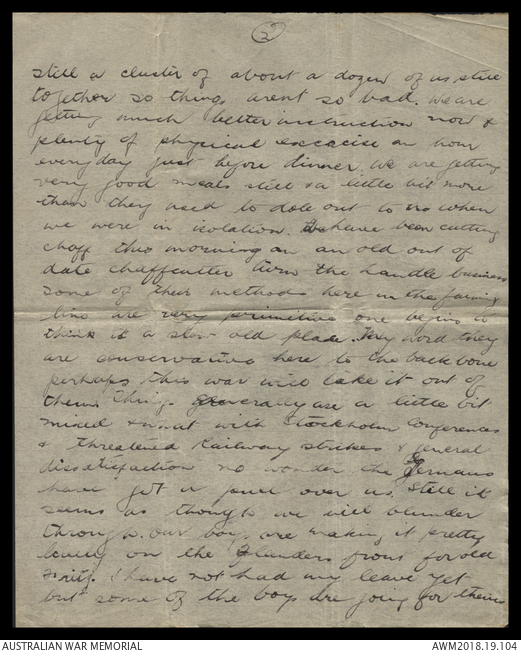 2
still a cluster of about a dozen of us still
together so things arent so bad. We are
getting much better instruction now &
plenty of physical excacise an hour
everyday just before dinner. We are getting
very good meals still & a little bit more
than they used to dole out to us when
we were in isolation. We have been cutting
chaff this morning on an old out of
date chaffcutter turn the handle business
some of their methods here in the faming
line are very primitive one begins to
think it a slow old place. My word they
are conservative here to the back bone
perhaps this war will take it out of
them. Things generally are a little bit
mixed & what with Stockholm Conferences
& threatened Railway strikes & general
dissatifaction no wonder the Germans
have got a over us. Still it
seems as though we will blunder
through. our boys are making it pretty
lively on the Flanders front for old
Fritz. I have not had my leave yet
but some of the boys are going for theirs
AUSTRALIAN WAR MEMORIAL
AWM2018.19.104